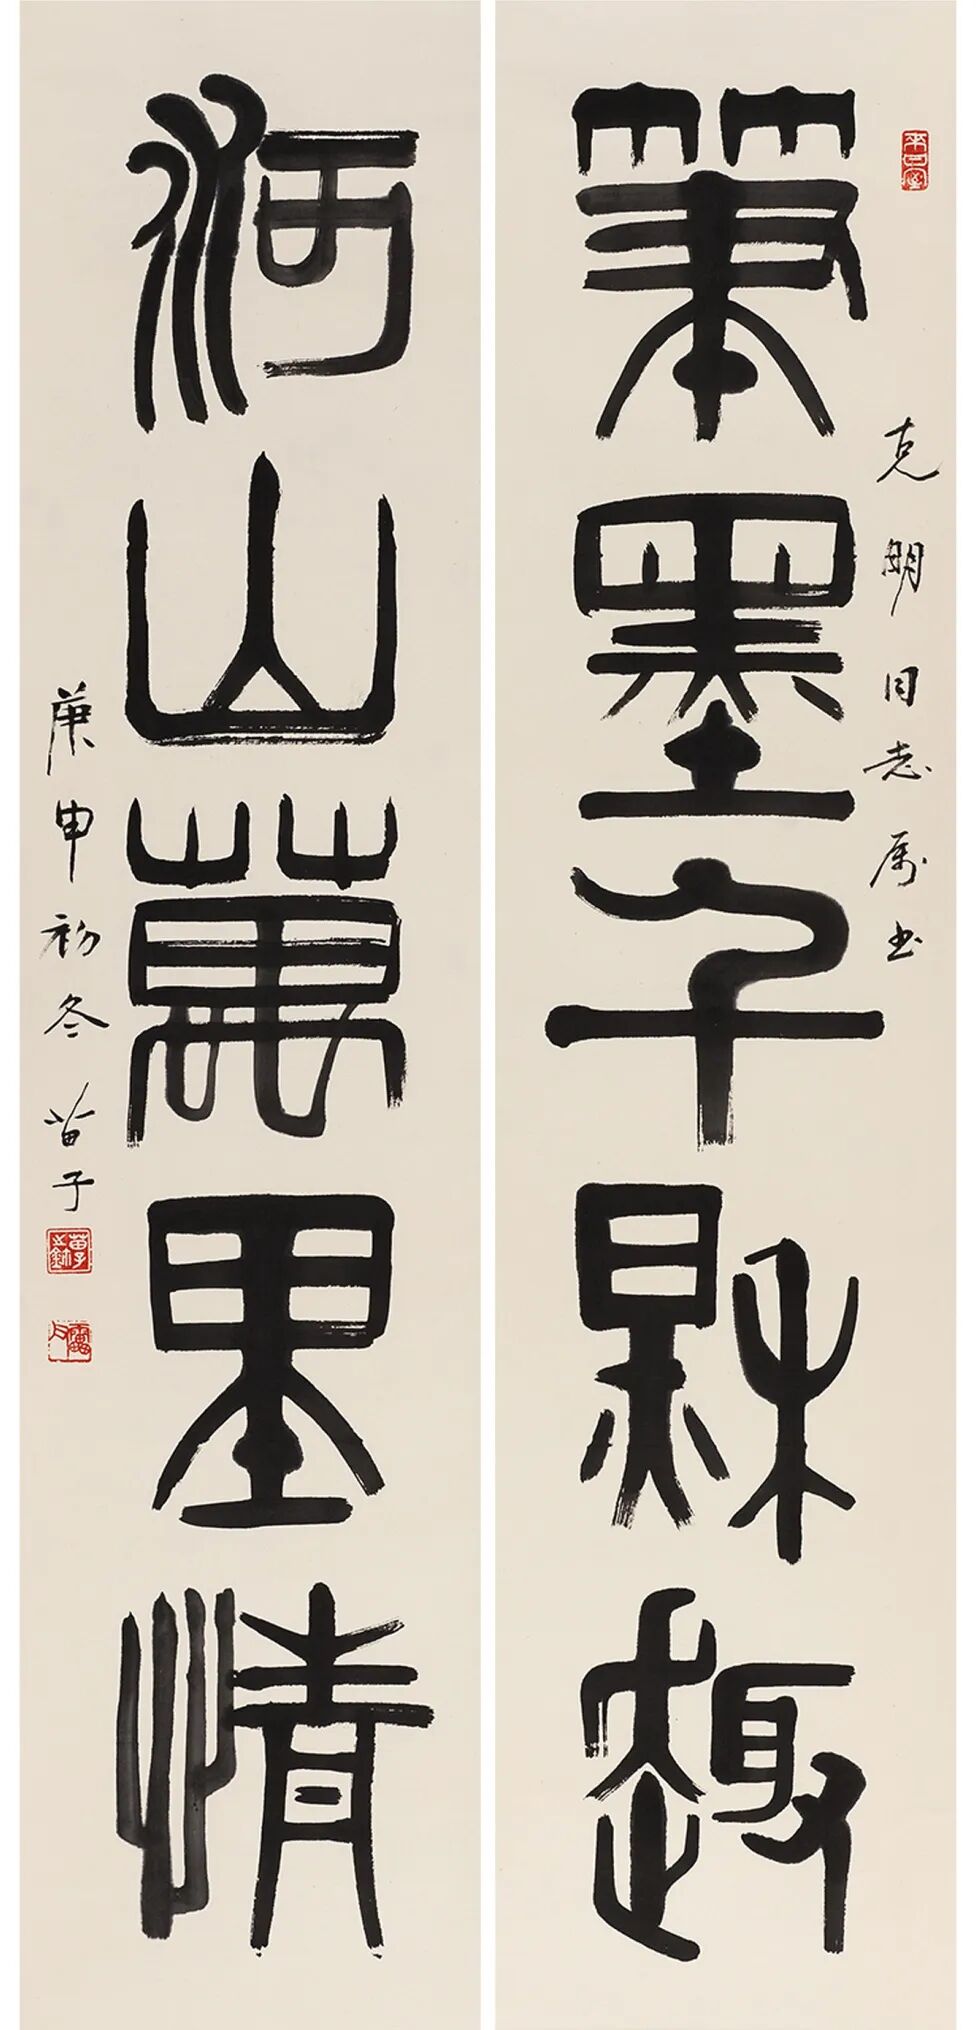 克明同志属书
筆墨千秋趣
河山萬里情
庚申初冬苗子